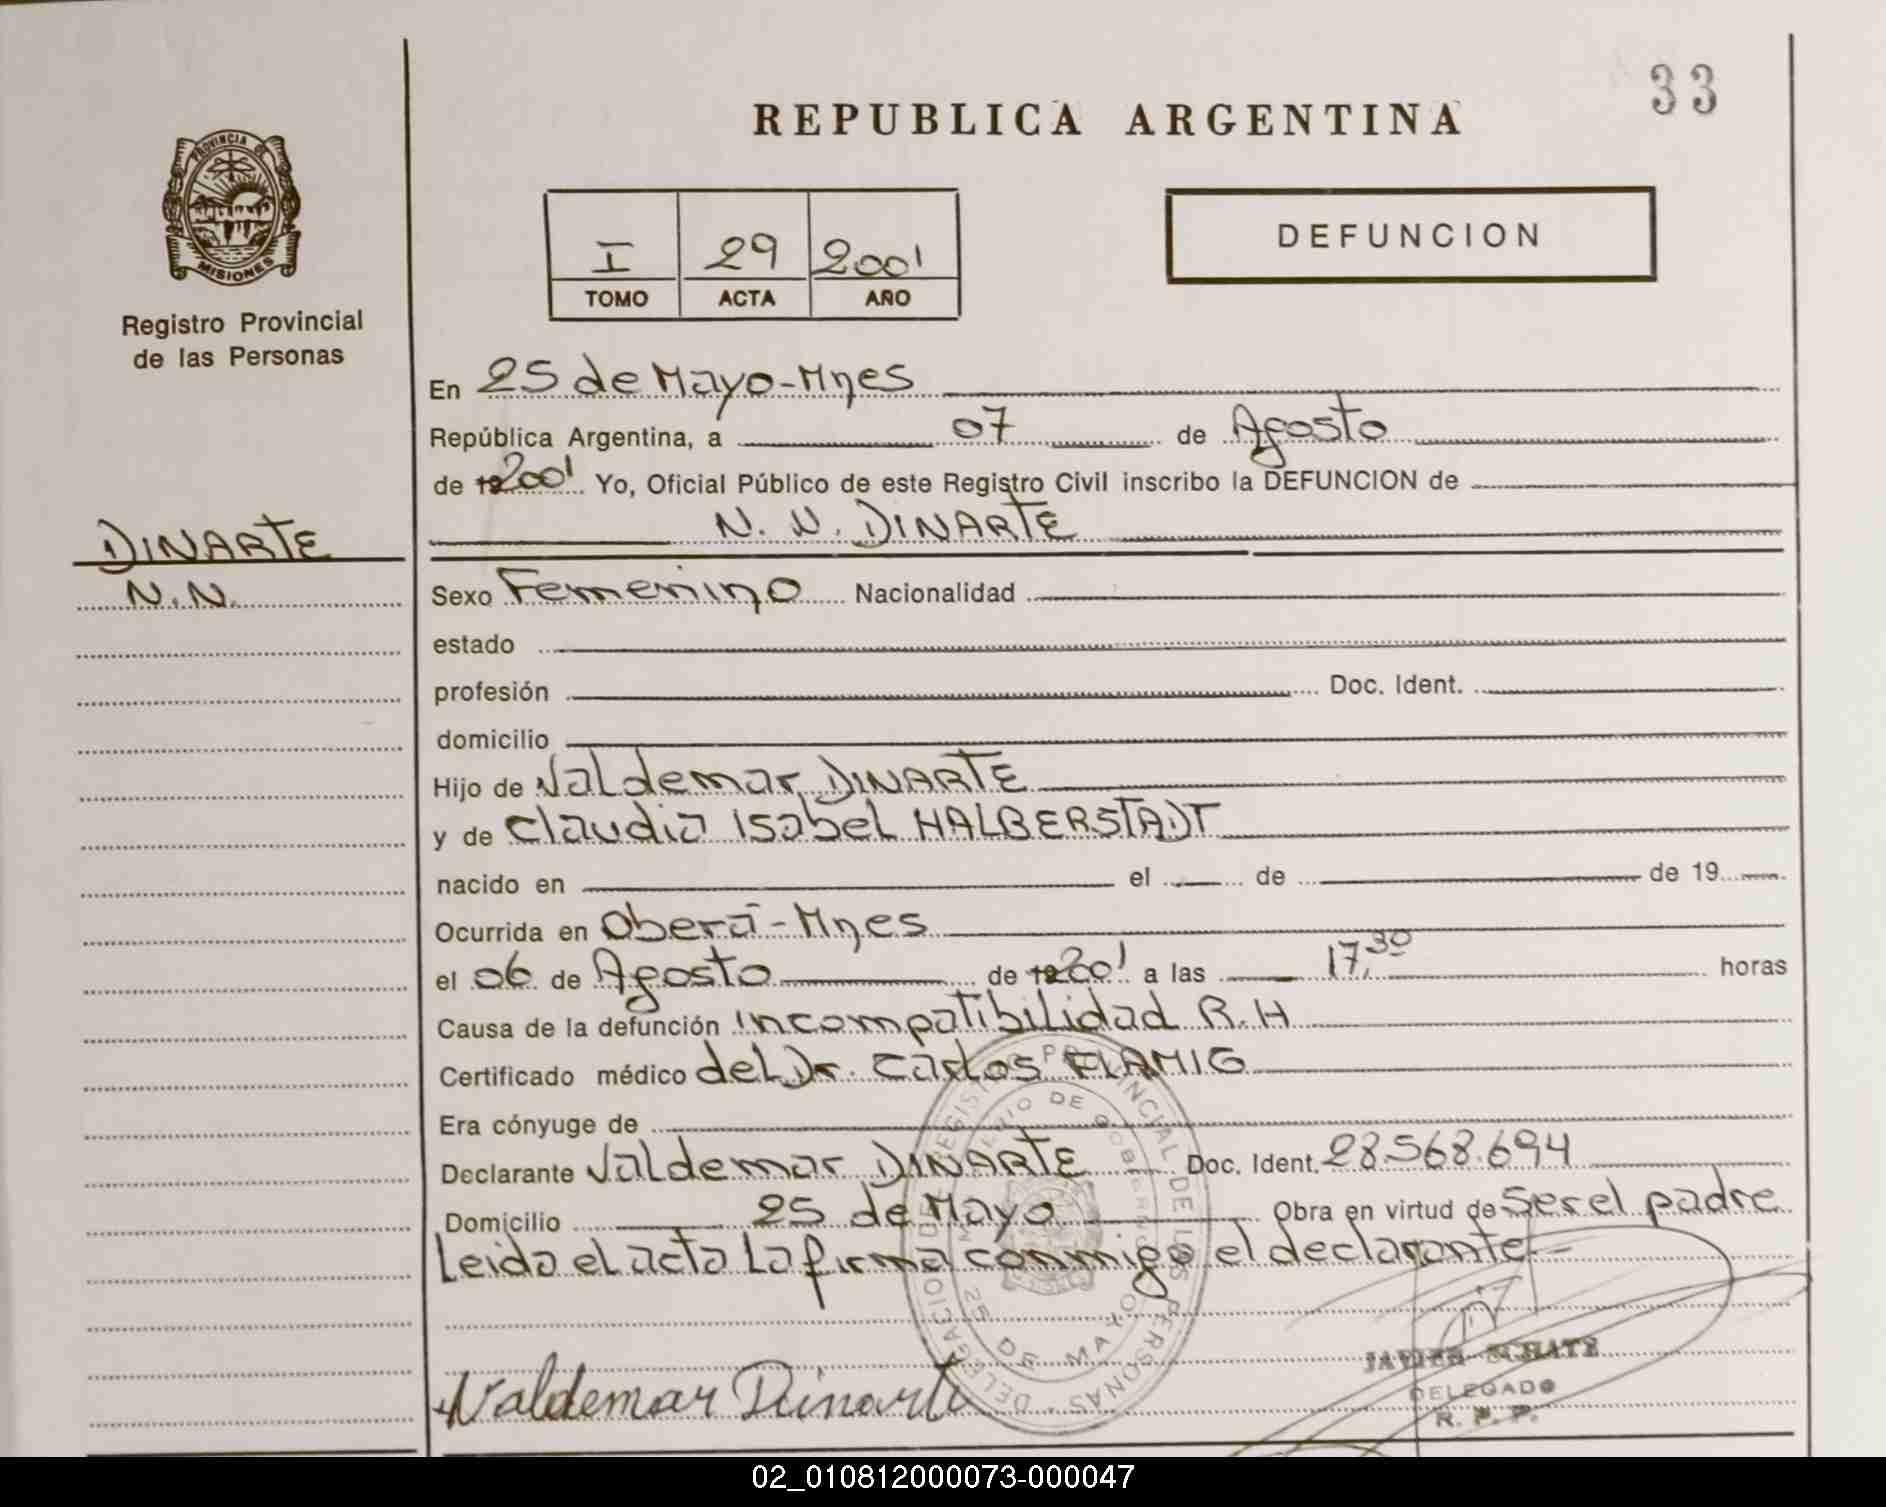 33
REPUBLICA ARGENTINA
PROVINCIA DE
MISIONES
Registro Provincial
de las Personas
I 29 2001
TOMO ACTA AÑO
DEFUNCION
En 25 de Mayo-Mnes
República Argentina, a 07 de Agosto
de 192001 Yo, Oficial Público de este Registro Civil inscribo la DEFUNCION de
N. N. DINARTE
DINARTE
N.N.
Sexo Femenino Nacionalidad
estado
profesión Doc. Ident.
domicilio
Hijo de Valdemar DINARTE
y de Claudia Isabel HALBERSTADT
nacido en el de de 19
Ocurrida en Oberá-Mnes
el 06 de Agosto de 192001 a las 17,30 horas
Causa de la defunción incompatibilidad R.H
Certificado médico del Dr. Carlos FLAMIG
Era cónyuge de
Declarante Valdemar DINARTE Doc. Ident. 28.568.694
Domicilio 25 de Mayo Obra en virtud de Ser el padre
Leida el acta La firma conmigo el declarante.-
REGISTRO PROVINCIAL DE LAS PERSONAS - DELEGACIO
25 DE MAYO
Valdemar Dinarte
JAVIER
DELEGADO
R. P. P.
02_010812000073-000047